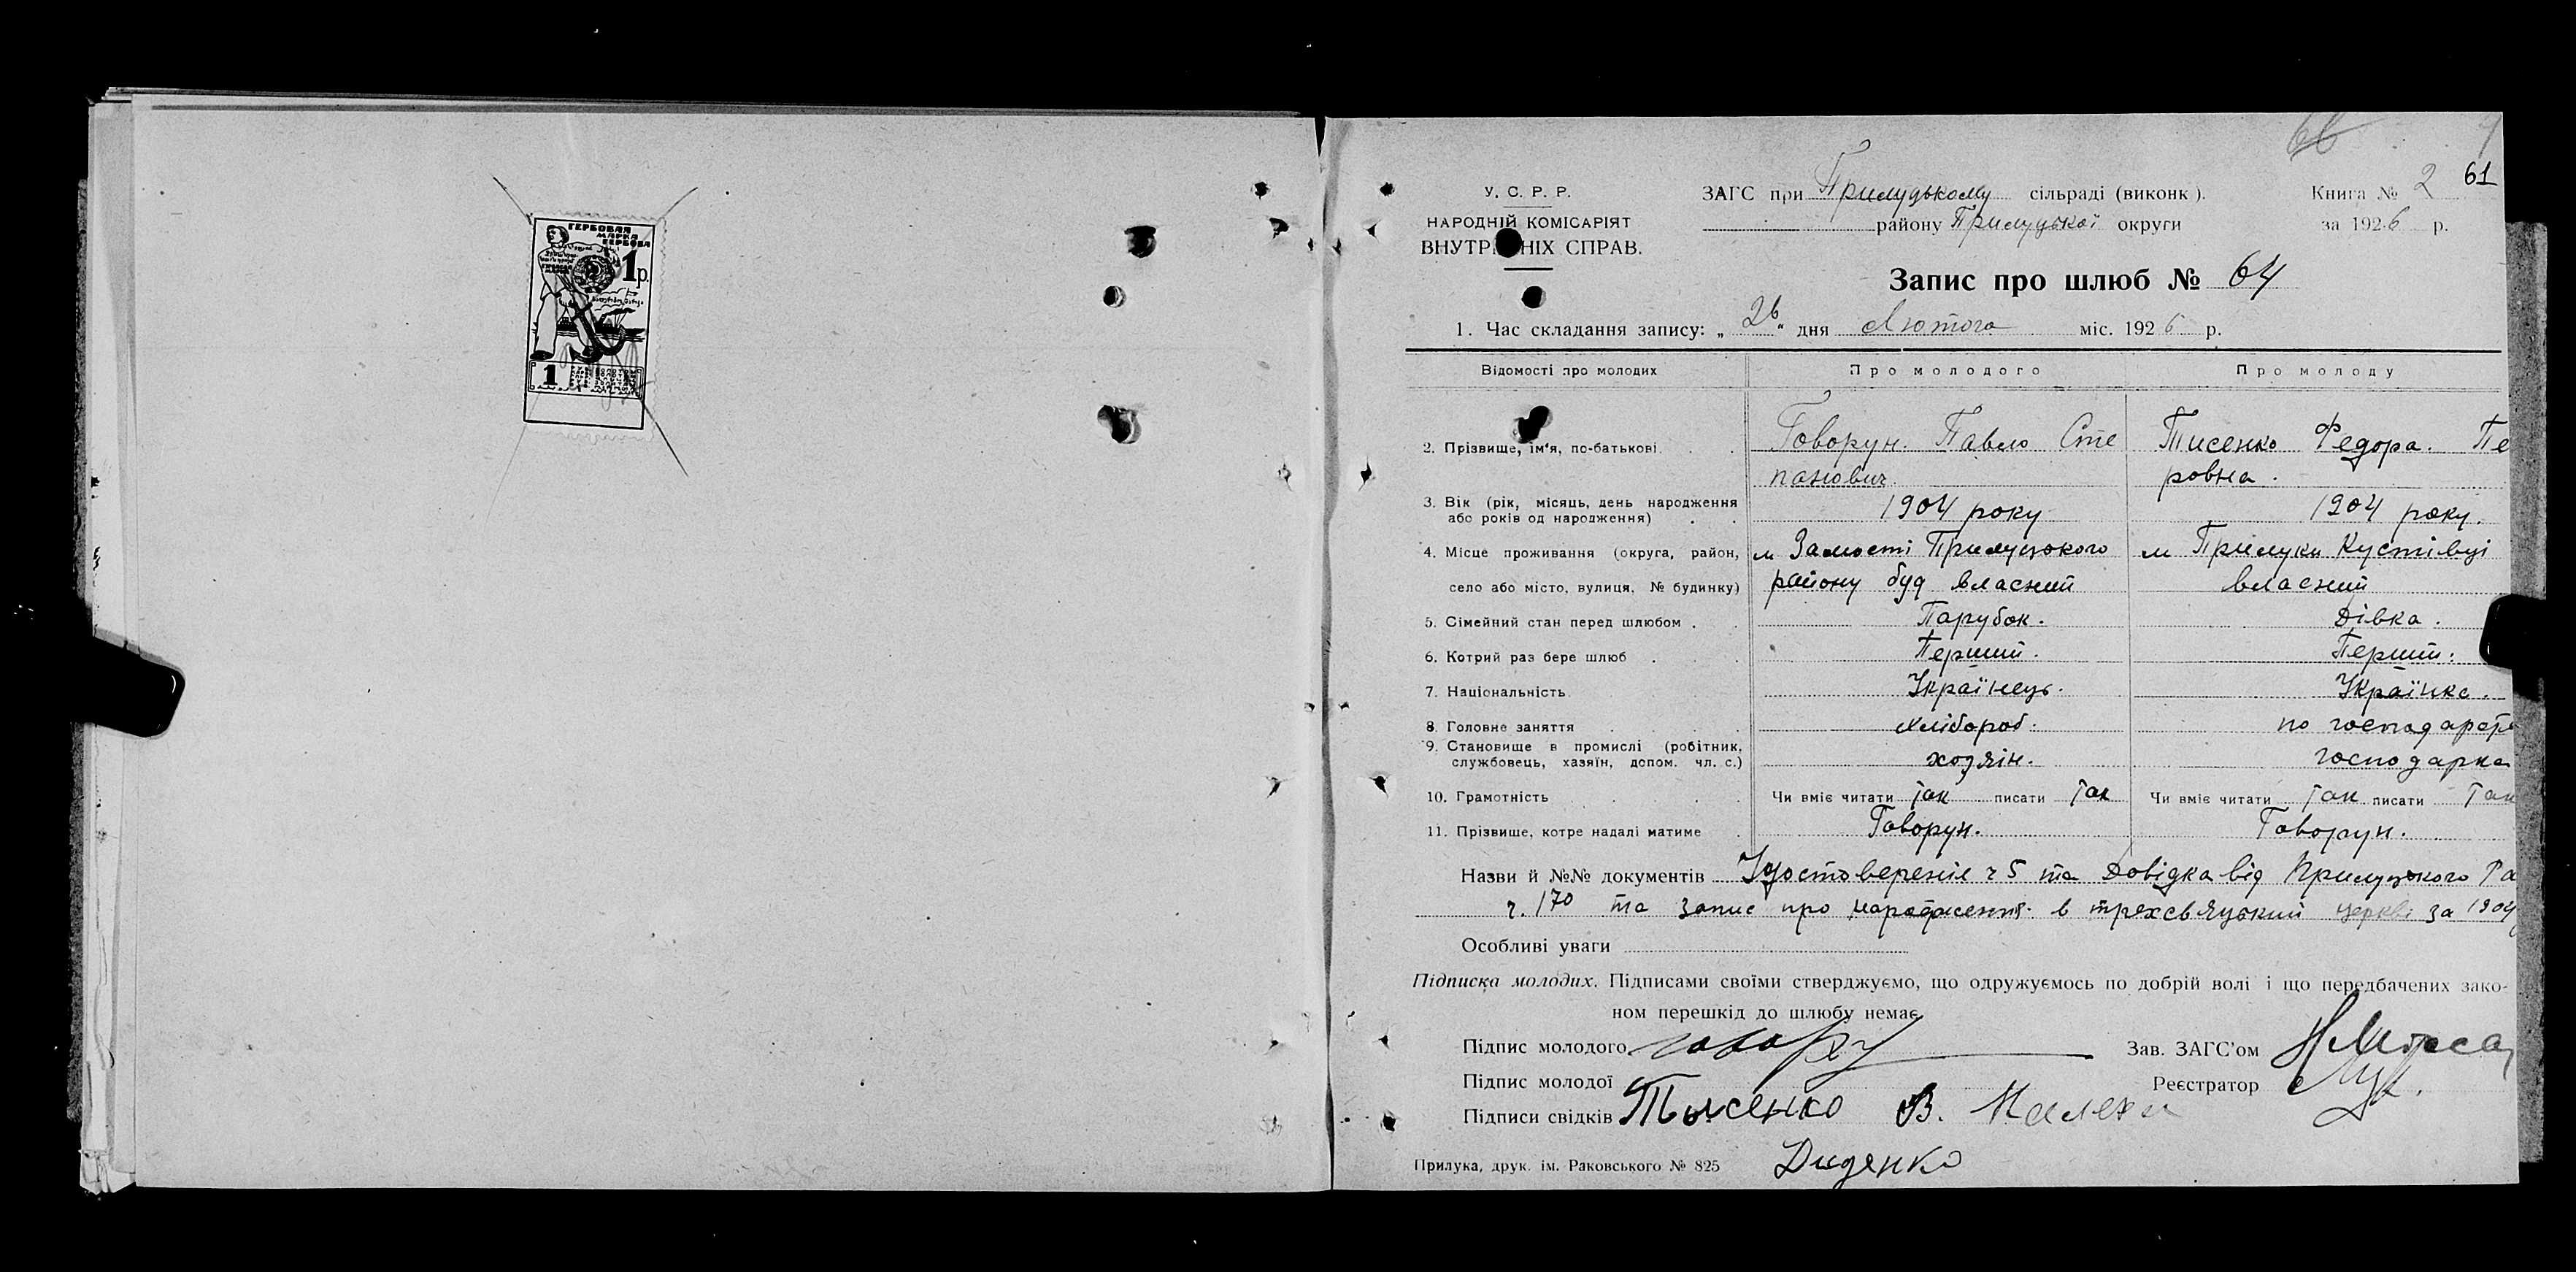 ГЕРБОВАЯ
МАРКА
ГЕРБОВА
1р.
1
61
У. С. Р. Р.
НАРОДНІЙ КОМІСАРІЯТ
ВНУТР НІХ СПРАВ.
ЗАГС при Прилуцькому сільраді (виконк).
району Прилуцької округи
Книга № 2
за 1926 р.
Запис про шлюб № 64
1. Час складання запису: „ 26 “ дня Лютого міс. 1926 р.
Відомості про молодих Про молодого Про молоду
2. Прізвище, ім'я, по-батькові Говорун. Павло Сте Тисенко Федора. Пе
панович. ровна.
3. Вік (рік, місяць, день народження 1904 року 1904 року.
або років од народження)
4. Місце проживання (округа, район, м Замості Прилуцького м Прилуки Кустівці
село або місто, вулиця, № будинку) району буд власний власний
5. Сімейний стан перед шлюбом . Парубок. Дівка.
6. Котрий раз бере шлюб Перший. Перший.
7. Національність Українець. Українка.
8. Головне заняття хлібороб. по господарст
9. Становище в промислі (робітник, хозяін. господарка
службовець, хазяїн, допом. чл. с.)
10. Грамотність Чи вміє читати так писати так Чи вміє читати так писати так
11. Прізвище, котре надалі матиме Говорун. Говорун.
Назви й №№ документів Удостоверенія ч 5 та Довідка від Прилуцького Ра
ч. 170 та запис про народження в трехсвяцький церкві за 1904
Особливі уваги
Підписка молодих. Підписами своїми стверджуємо, що одружуємось по добрій волі і що передбачених зако-
ном перешкід до шлюбу немає
Підпис молодого говору Зав. ЗАГС'ом
Підпис молодої Реєстратор
Підписи свідків Тысенко В.
Диденко
Прилука, друк. ім. Раковського № 825